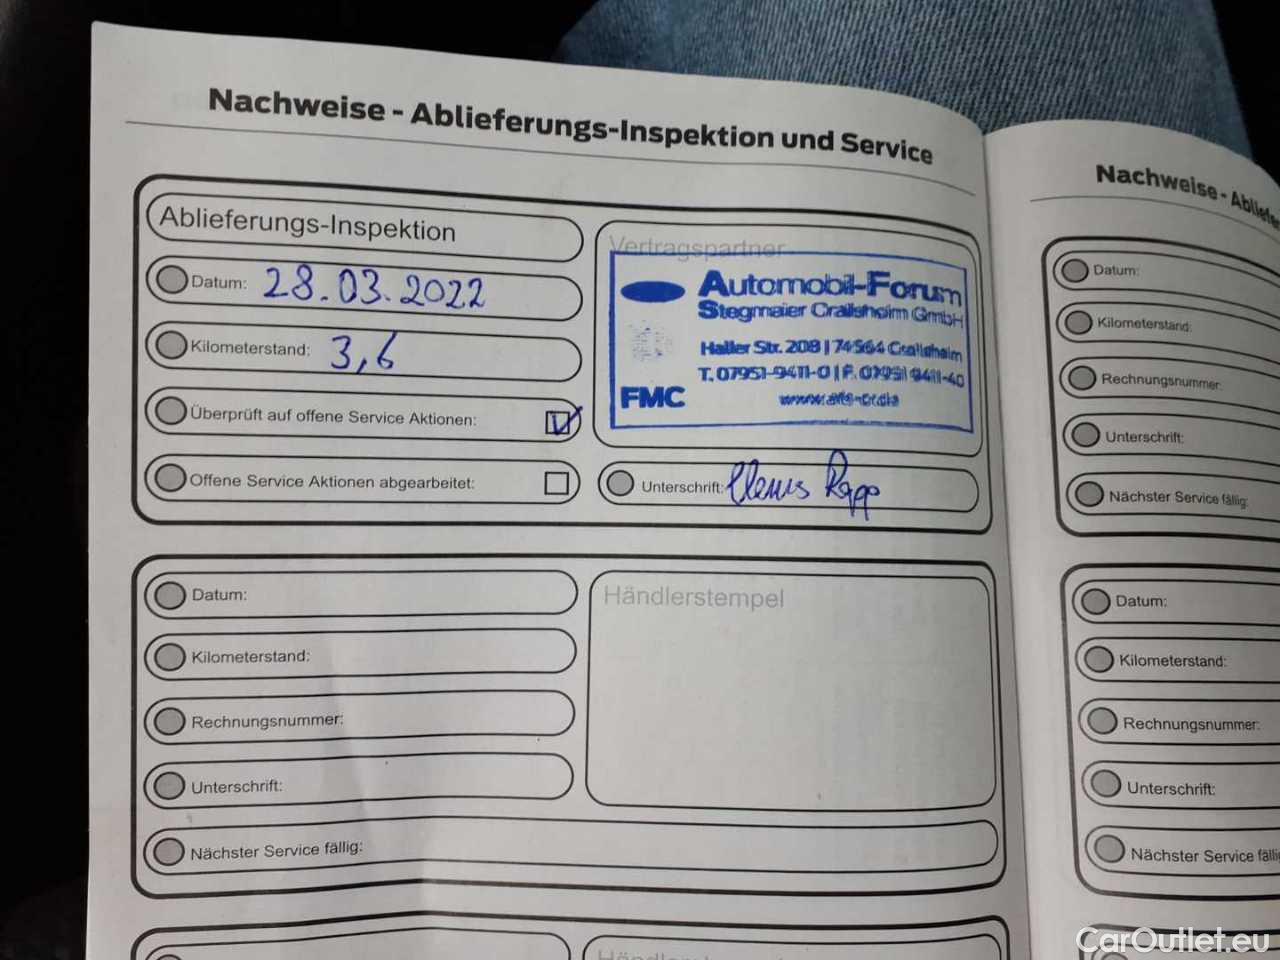 Nachweise - Ablieferungs-Inspektion und Service
Ablieferungs-Inspektion
Datum: 28.03.2022
Kilometerstand: 3,6
Überprüft auf offene Service Aktionen:
Offene Service Aktionen abgearbeitet:
Vertragspartner
Automobil-Forum
Stegmaier Crailsheim GmbH
Haller Str. 208 | 74564 Crailsheim
T. 07951-9411-0 | F. 07951 9411-40
FMC
Unterschrift: Rapp
Datum:
Kilometerstand:
Rechnungsnummer:
Unterschrift:
Nächster Service fällig:
Händlerstempel
Nachweise - Abliefe
Datum:
Kilometerstand:
Rechnungsnummer:
Unterschrift:
Nächster Service fällig:
Datum:
Kilometerstand:
Rechnungsnummer:
Unterschrift:
Nächster Service fällig
CarOutlet.eu